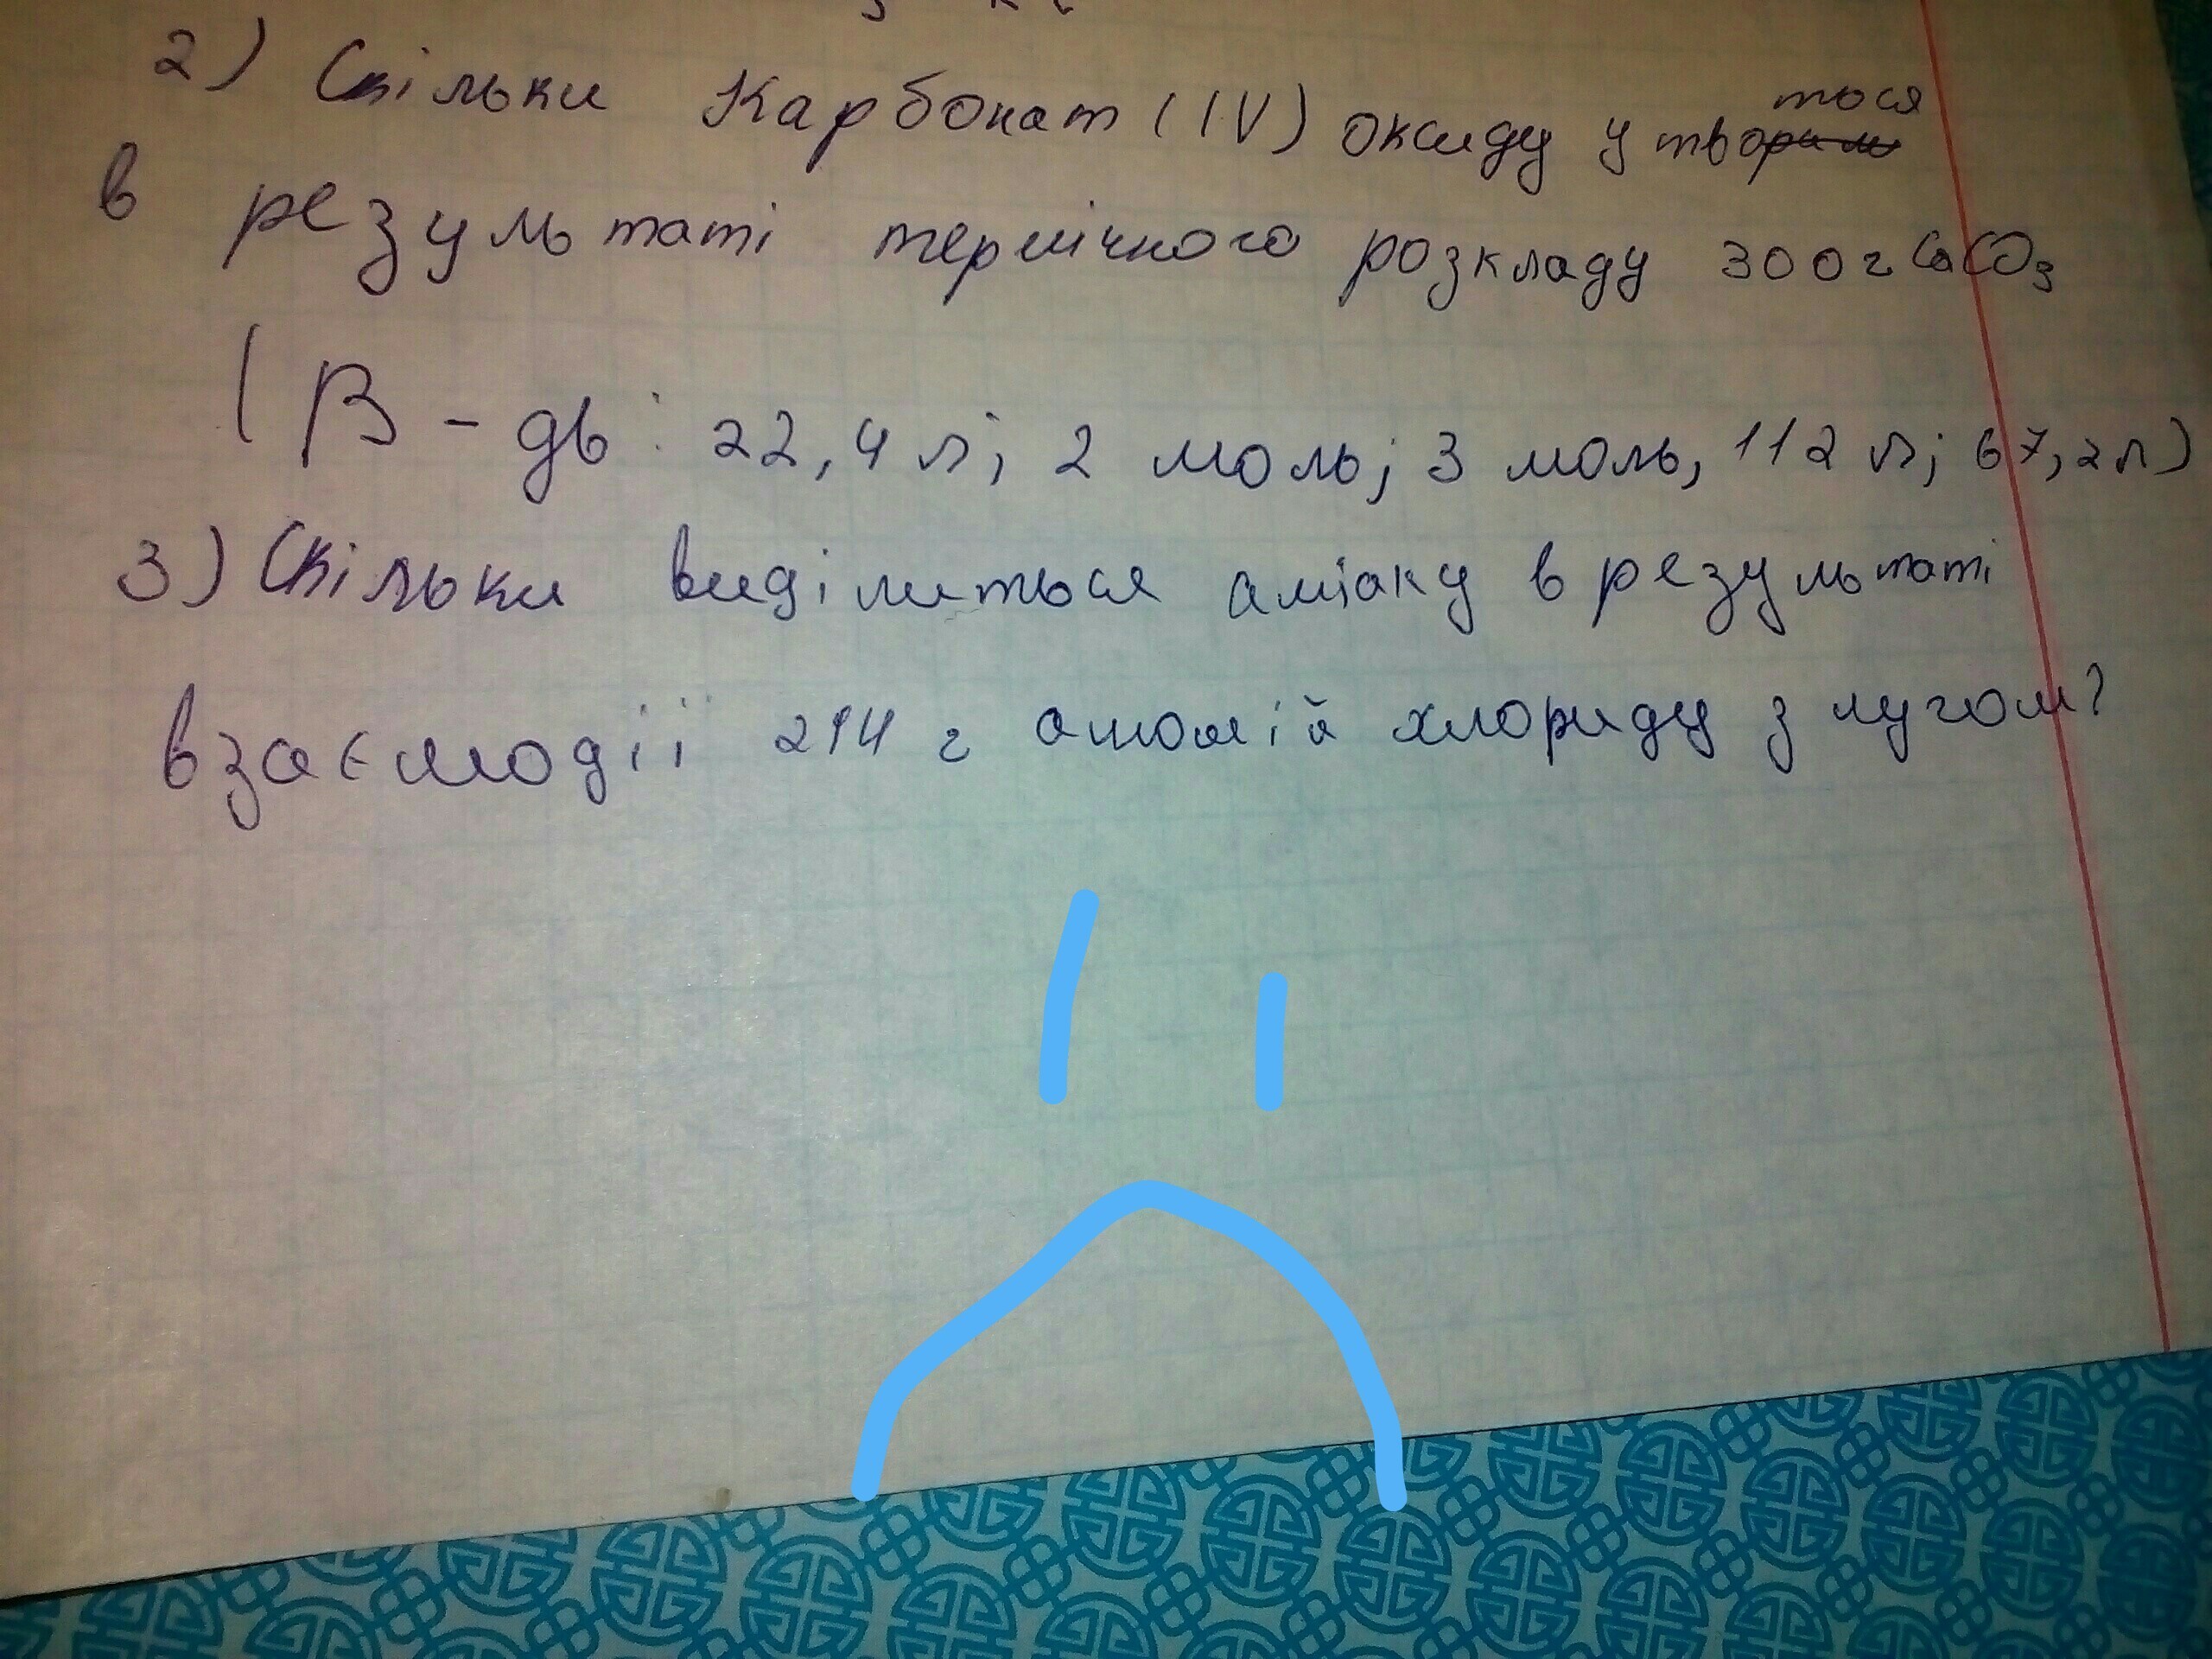 2) Скільки Карбонат (IV) оксиду утвориться
в результаті термічного розкладу 300г CaCO3
(В - дь: 22,4 л; 2 моль; 3 моль, 112 л; 67,2л)
3) Скільки виділиться аміаку в результаті
взаємодії 214 г амоній хлориду з лугом?